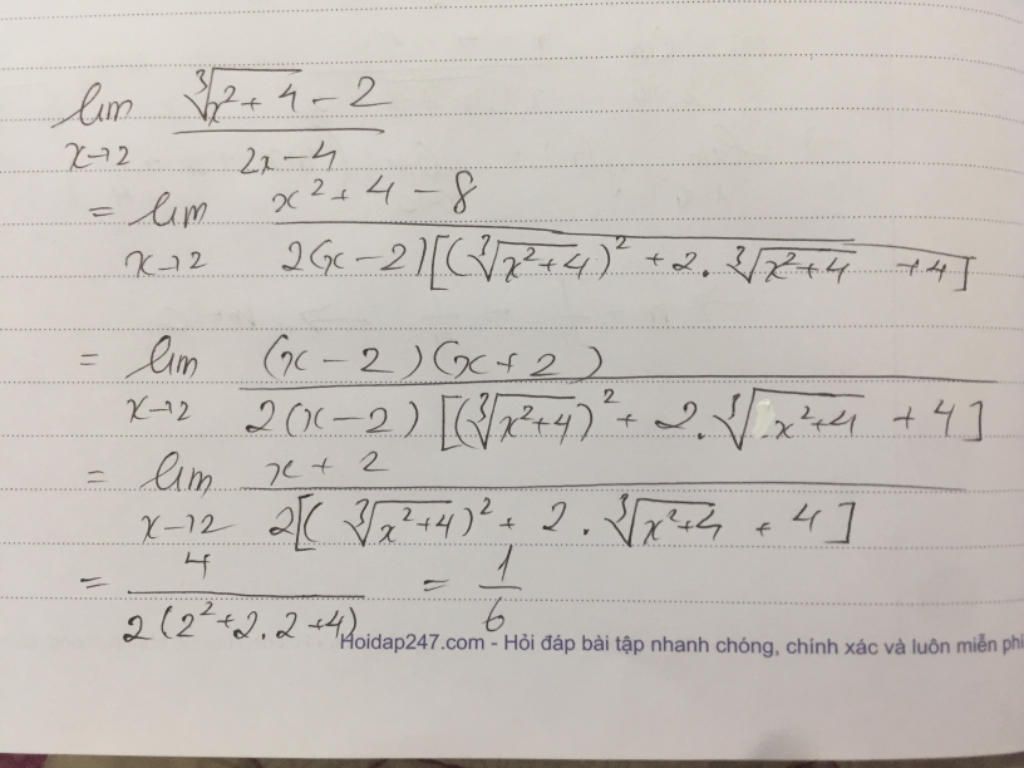 lim ∛(x²+4) - 2
x→2 2x-4
= lim x²+4-8
x→2 2(x-2)[(∛(x²+4))² + 2.∛(x²+4) +4]
= lim (x-2)(x+2)
x→2 2(x-2)[(∛(x²+4))² + 2.∛(x²+4) +4]
= lim x+2
x→2 2[(∛(x²+4))² + 2.∛(x²+4) +4]
= 4 = 1
2(2²+2.2+4) 6
Hoidap247.com - Hỏi đáp bài tập nhanh chóng, chính xác và luôn miễn phí